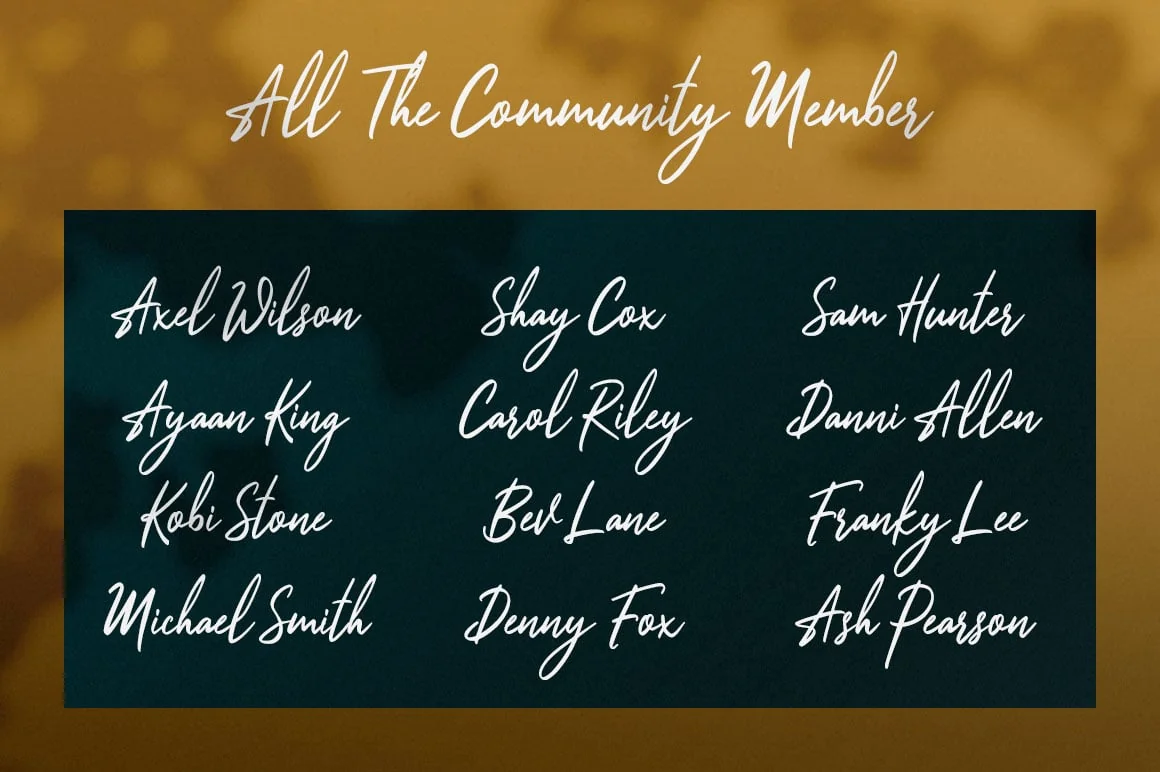 All The Community Member
Axel Wilson
Shay Cox
Sam Hunter
Ayaan King
Carol Riley
Danni Allen
Kobi Stone
Bev Lane
Franky Lee
Michael Smith
Denny Fox
Ash Pearson